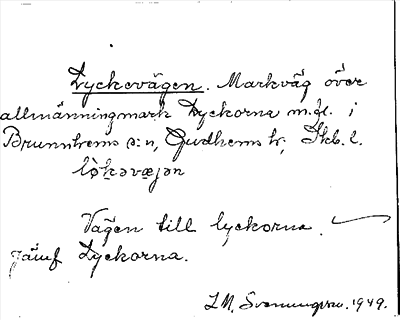 Lyckevägen. Markväg över
allmänningmark Lyckorna m.fl. i
Brunnhems s:n, Gudhems hd, Skb. l.
lỳkəvæjən
Vägen till lyckorna.
Jämf Lyckorna.
J.M. Svenungsson. 1949.